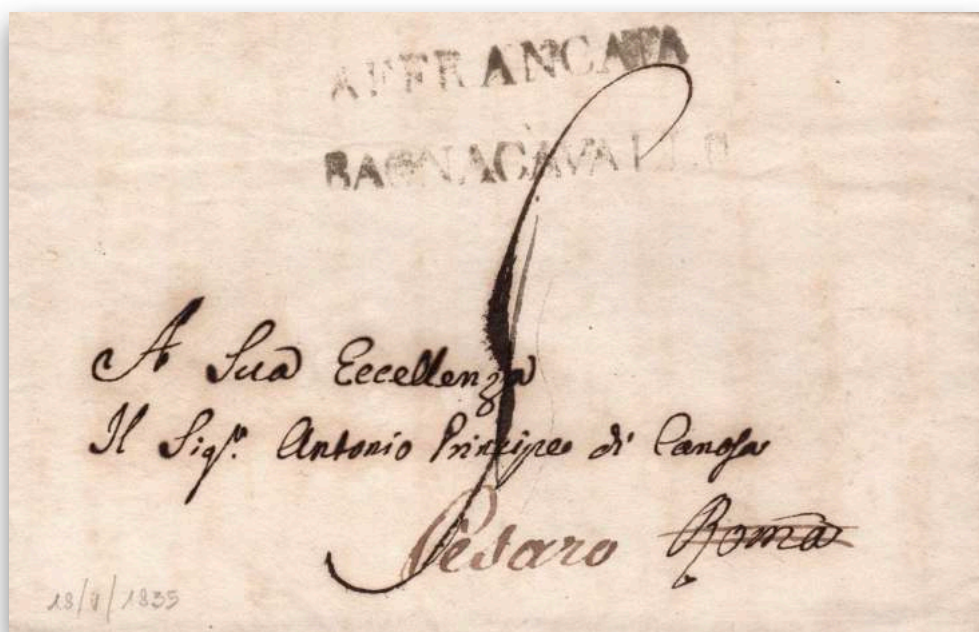 AFFRANCATA
BAGNACAVALLO
A Sua Eccellenza
Il Sigr. Antonio Principe di Canosa
Pesaro Roma
18/V/1835